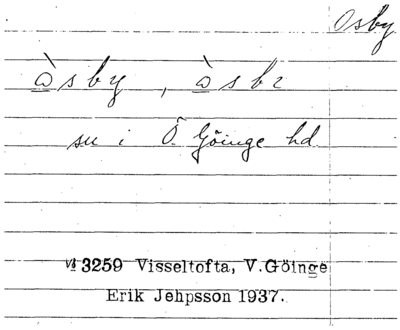 Osby
òsby, òsbı
sn i Ö. Göinge hd.
№ 3259 Visseltofta, V. Göinge
Erik Jehpsson 1937.